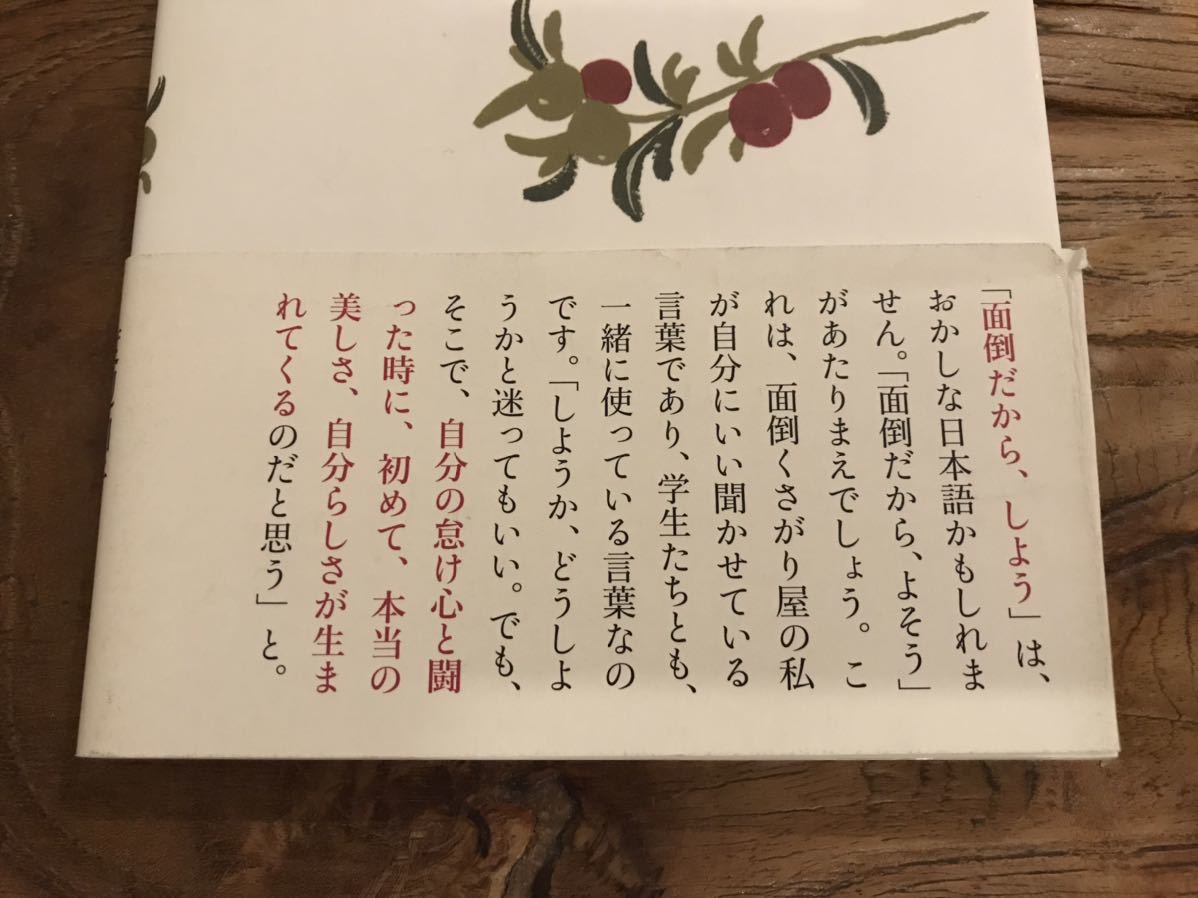 「面倒だから、しよう」は、
おかしな日本語かもしれま
せん。「面倒だから、よそう」
があたりまえでしょう。こ
れは、面倒くさがり屋の私
が自分にいい聞かせている
言葉であり、学生たちとも、
一緒に使っている言葉なの
です。「しようか、どうしよ
うかと迷ってもいい。でも、
そこで、自分の怠け心と闘
った時に、初めて、本当の
美しさ、自分らしさが生ま
れてくるのだと思う」と。